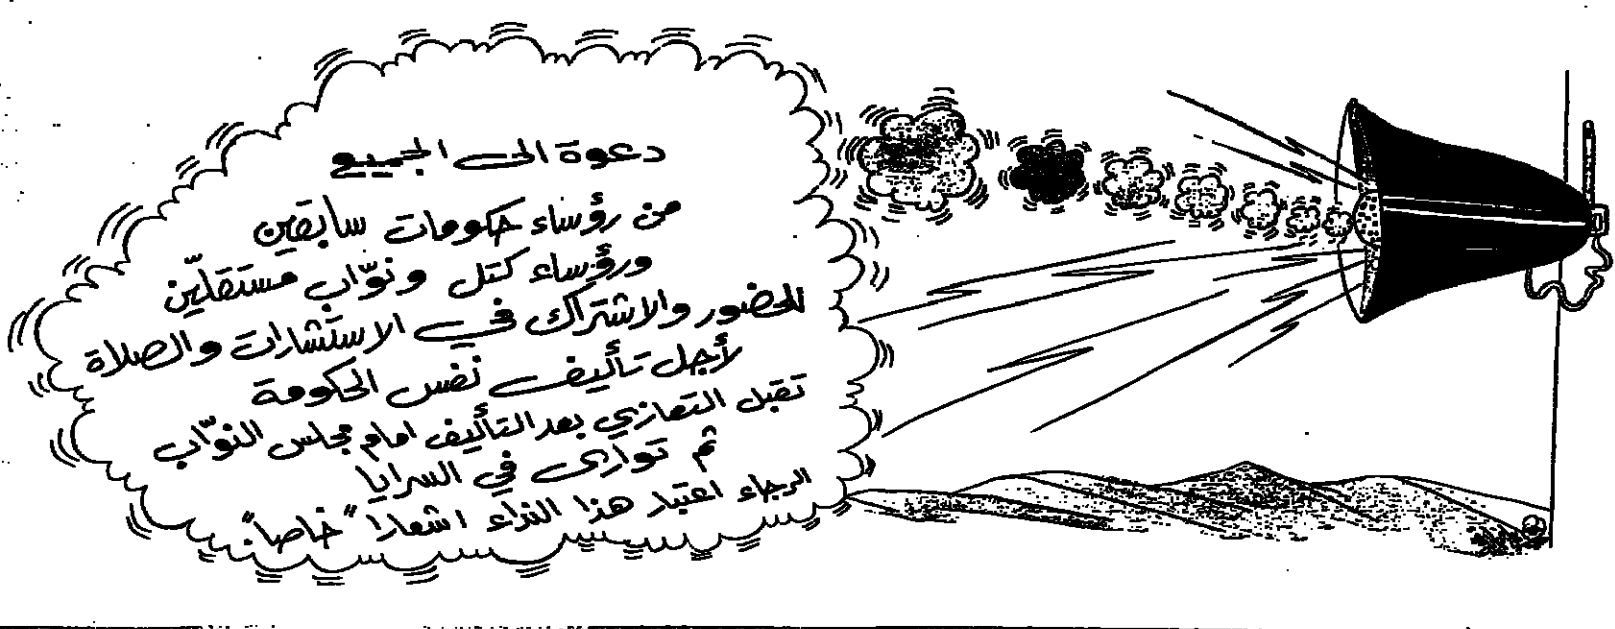 دعوة الى الجميع
من رؤساء حكومات سابقين
ورؤساء كتل ونوّاب مستقلّين
للحضور والاشتراك في الاستشارات والصلاة
لأجل تأليف نفس الحكومة
تقبل التعازي بعد التأليف امام مجلس النوّاب
ثم توارى في السرايا
الرجاء اعتبار هذا النداء اشعارا "خاصاً".